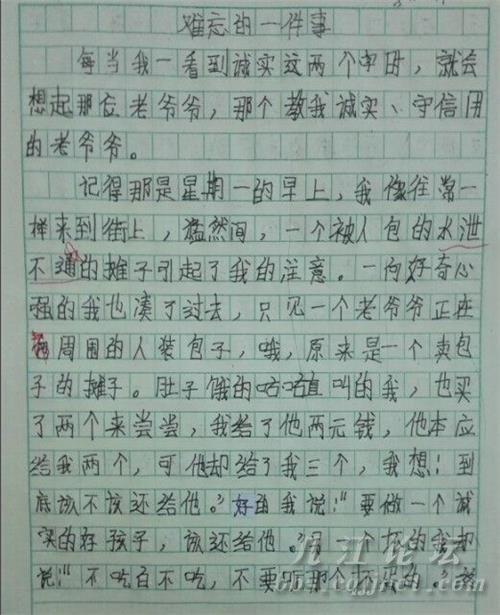 难忘的一件事
每当我一看到诚实这两个字时，就会
想起那位老爷爷，那个教我诚实、守信用
的老爷爷。
记得那是星期一的早上，我像往常一
样来到街上，猛然间，一个被人包的水泄
不通的摊子引起了我的注意。一向好奇心
强的我也凑了过去，只见一个老爷爷正在
周围的人装包子，哦，原来是一个卖包
子的摊子。肚子饿的咕咕直叫的我，也买
了两个来尝尝，我给了他两元钱，他本应
给我两个，可他却给了我三个，我想！到
底该不该还给他。”好的我说！“要做一个诚
实的好孩子，该还给他。”另一个坏的我却
说！“不吃白不吃，不要
九江论坛